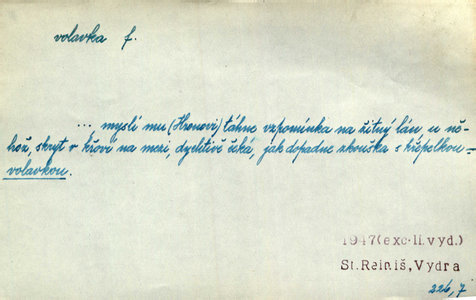 volavka f.
... myslí mu (Hronovi) táhne vzpomínka na žitný lán, u ně-
hož, skryt v křoví na mezi, dychtivě čeká, jak dopadne zkouška s křepelkou-
volavkou.
1947 (exc. II. vyd.)
St. Reiniš, Vydra
226, 7